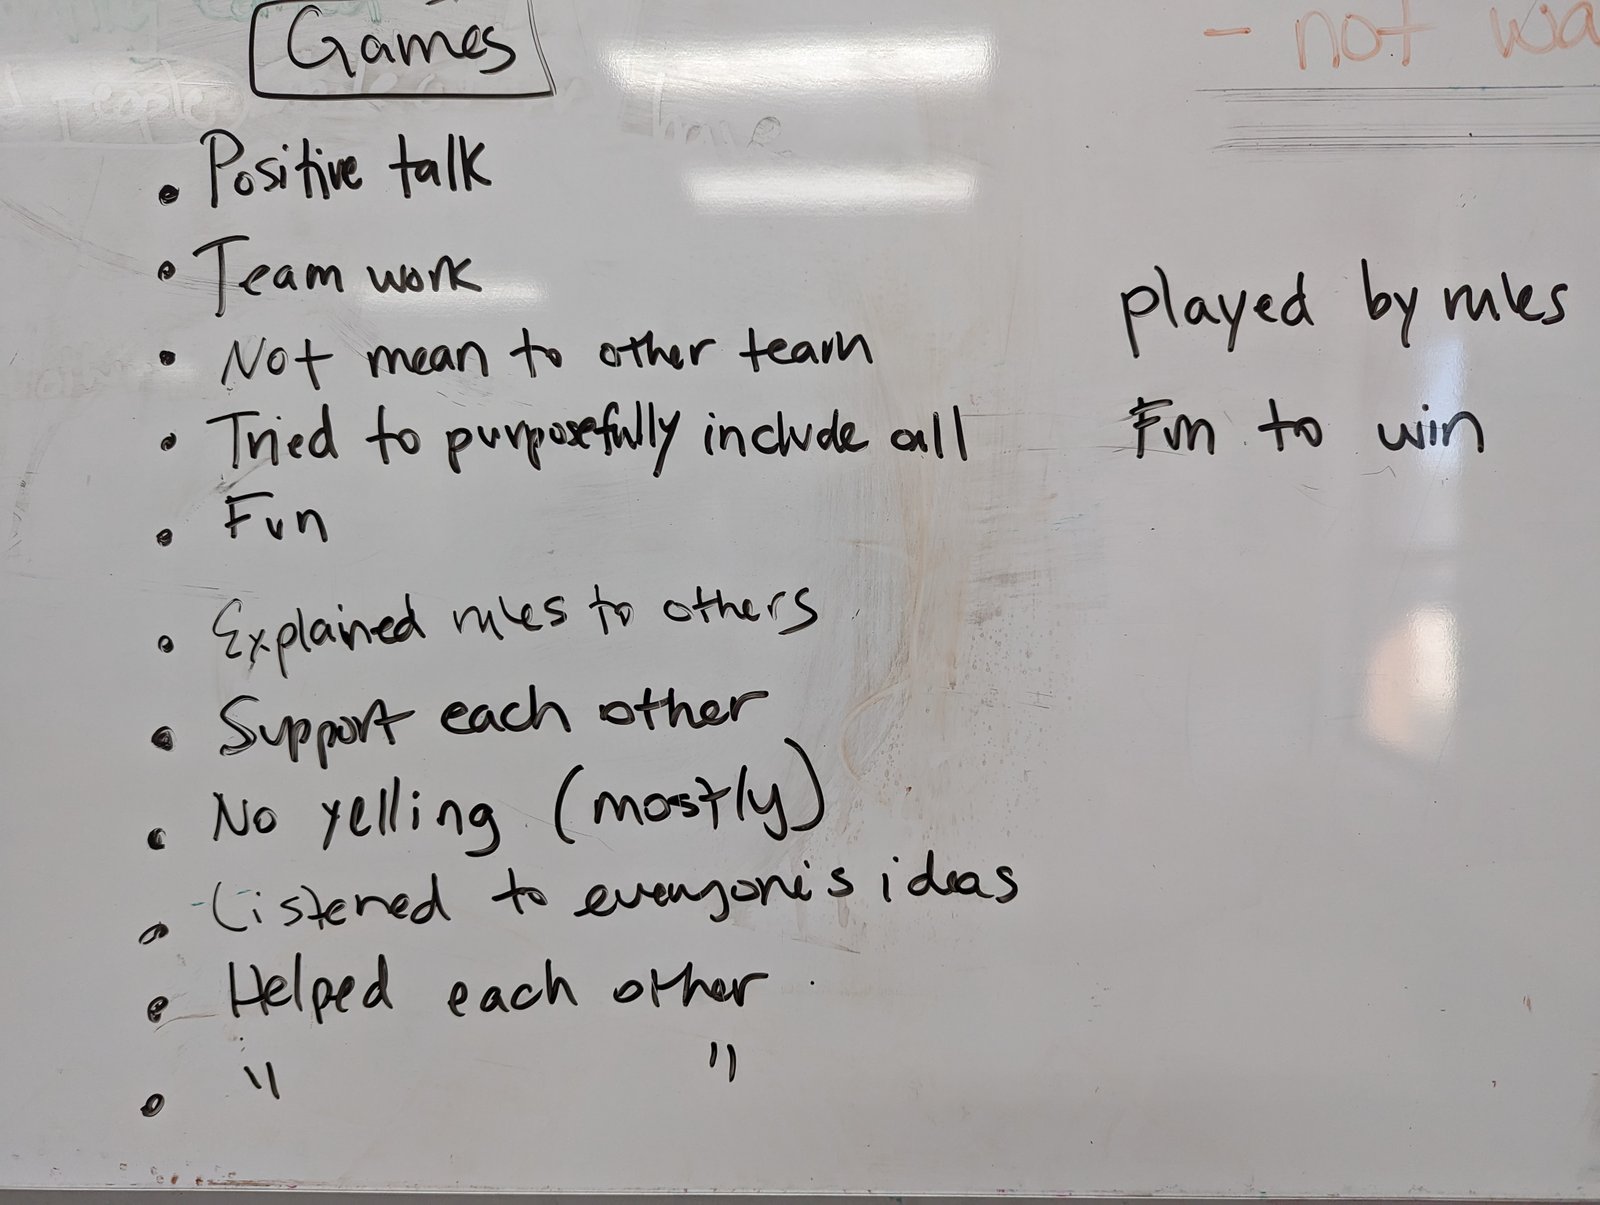 Games
- not wa
people
have
• Positive talk
• Team work
• Not mean to other team
• Tried to purposefully include all
• Fun
• Explained rules to others
• Support each other
• No yelling (mostly)
• Listened to everyone's ideas
• Helped each other
• " "
played by rules
Fun to win